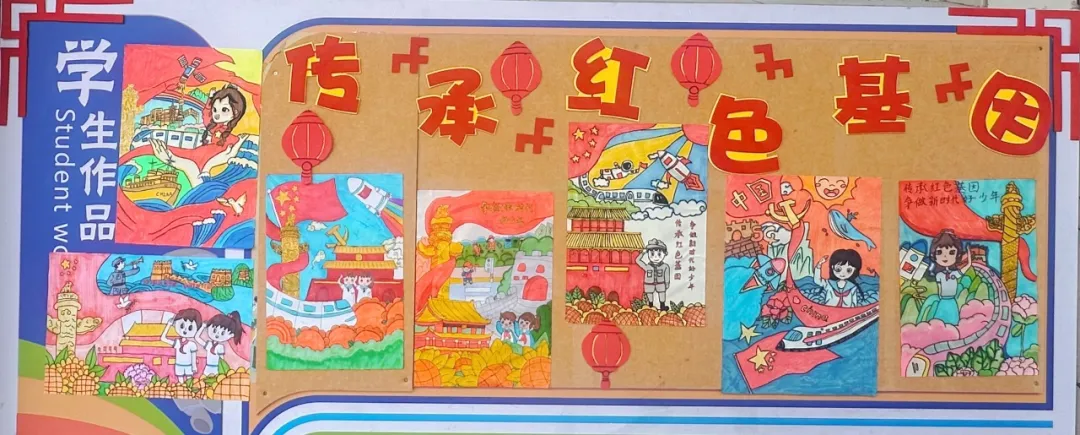 学生作品
Student wo
传承红色基因
中国
传承红色基因
争做新时代好少年
争做新时代的少年
传承红色基因